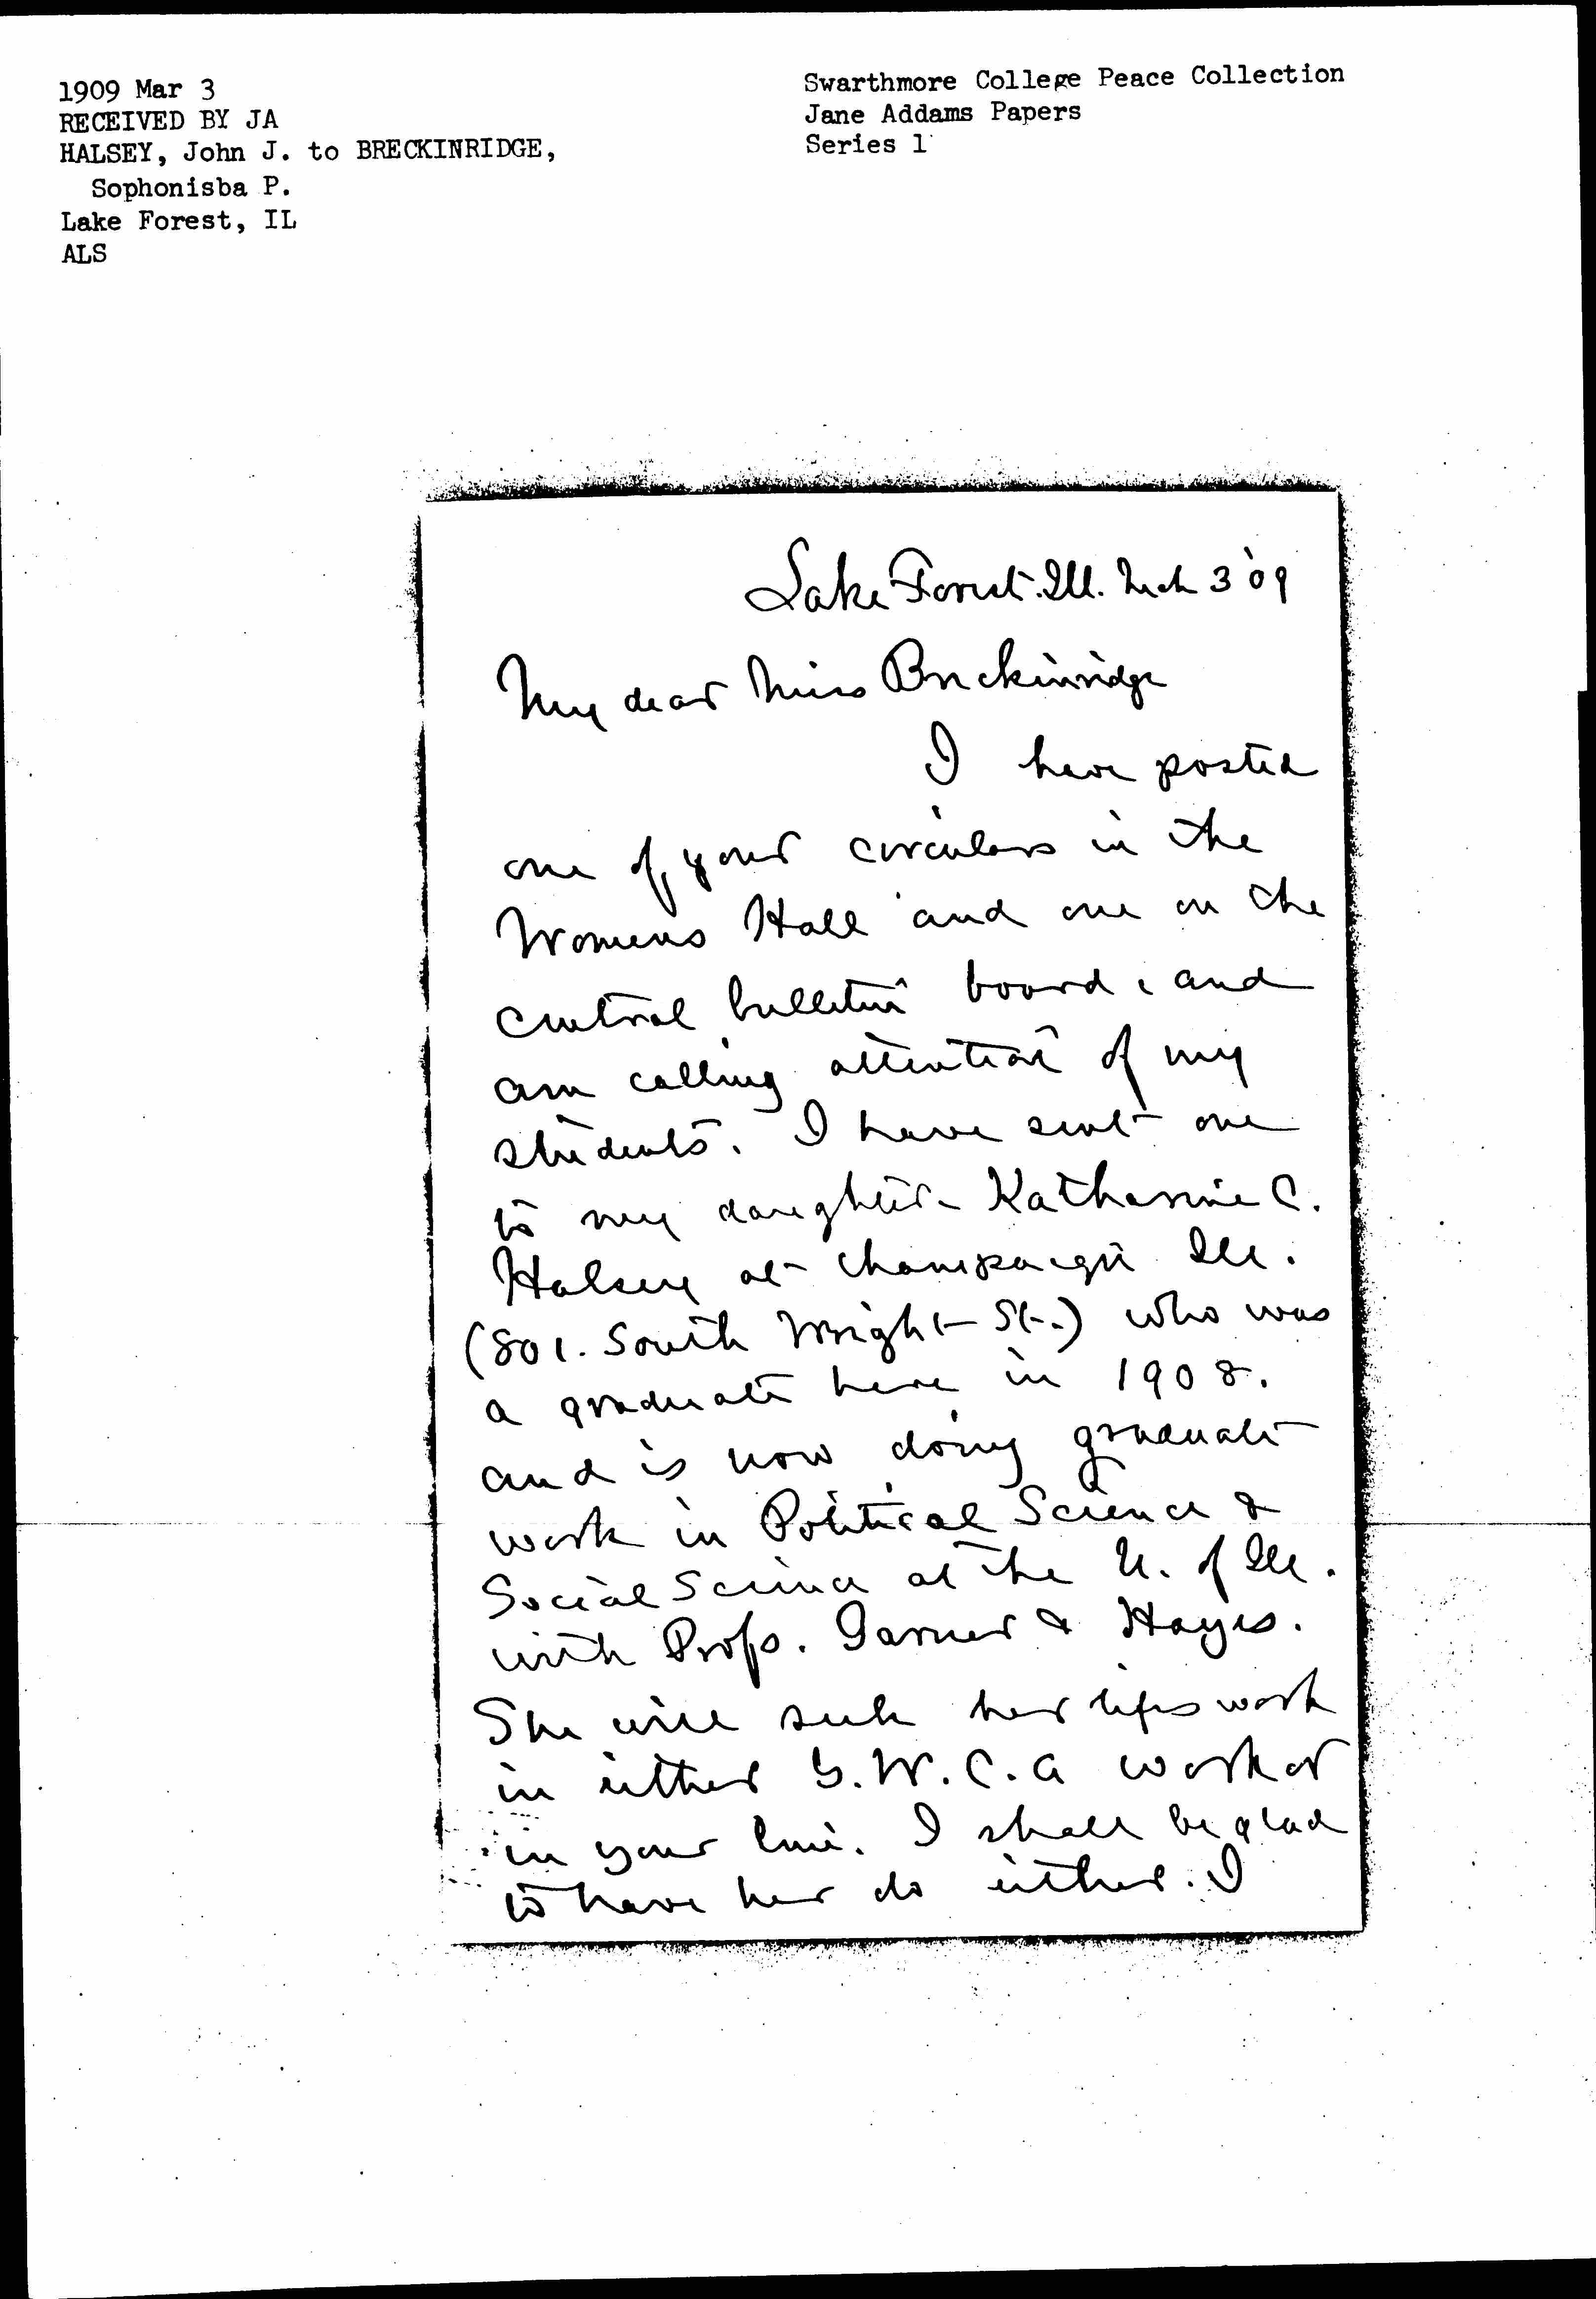 1909 Mar 3
RECEIVED BY JA
HALSEY, John J. to BRECKINRIDGE,
Sophonisba P.
Lake Forest, IL
ALS
Swarthmore College Peace Collection
Jane Addams Papers
Series 1
Lake Forest. Ill. Mch 3 '09
My dear Miss Breckinridge
I have posted
one of your circulars in the
Womens Hall and one on the
central bulletin board, and
am calling attention of my
students. I have sent one
to my daughter - Katharine C.
Halsey at Champaign Ill.
(801. South Wright St.) who was
a graduate here in 1908.
and is now doing graduate
work in Political Science &
Social Science at the U. of Ill.
with Profs. Garner & Hayes.
She will seek her lifes work
in either Y.W.C.A work or
in your line. I shall be glad
to have her do either. I